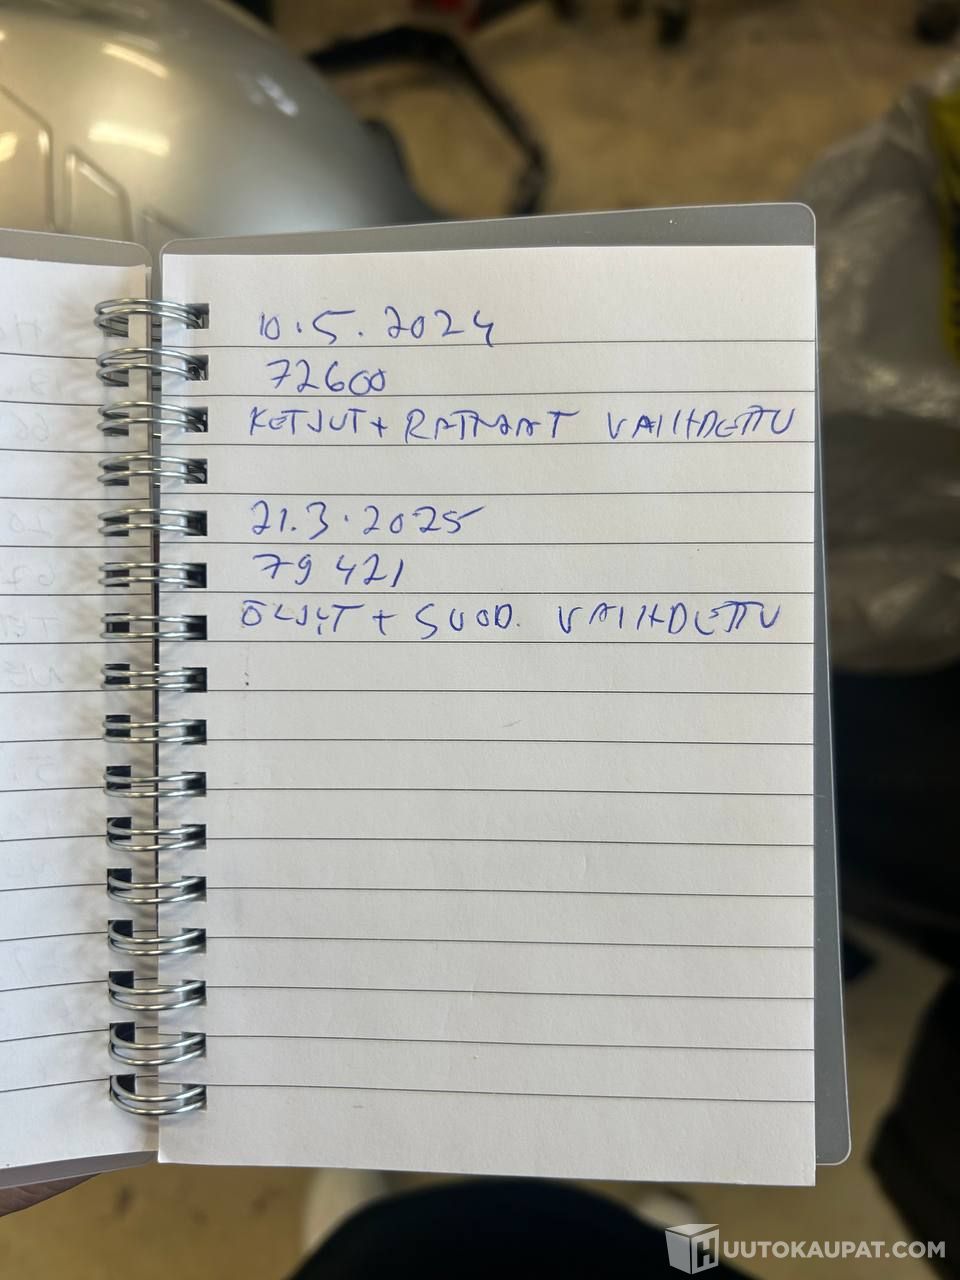 10.5.2024
72600
KETJUT + RATTAAT VAIHDETTU
21.3.2025
79 421
ÖLJYT + SUOD. VAIHDETTU
HUUTOKAUPAT.COM